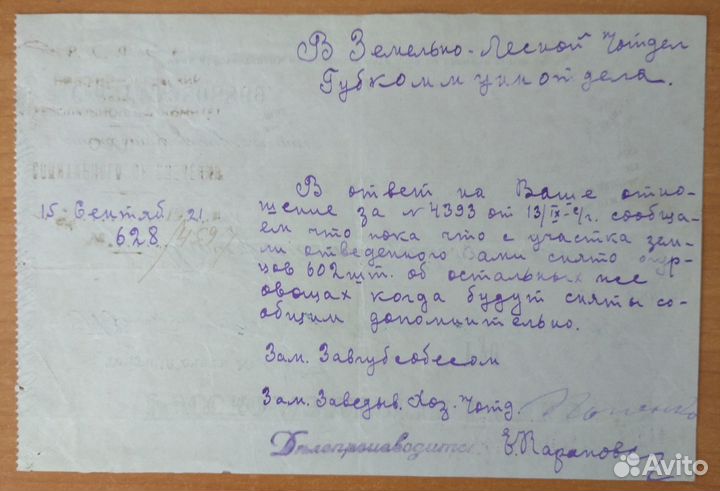 В Земельно-Лесной П/отдел
Губкоммунотдела.
15 Сентяб 21.
628
В ответ на Ваше отно-
шение за № 4393 от 13/IX-с/г. сообща-
ем что пока что с участка зем-
ли отведенного Вами снято огур-
цов 602 шт. об остальных же
овощах когда будут сняты со-
общим дополнительно.
Зам. Завгубсобесом
Зам. Заведыв. Хоз. П/отд.
Дѣлопроизводитель
Avito